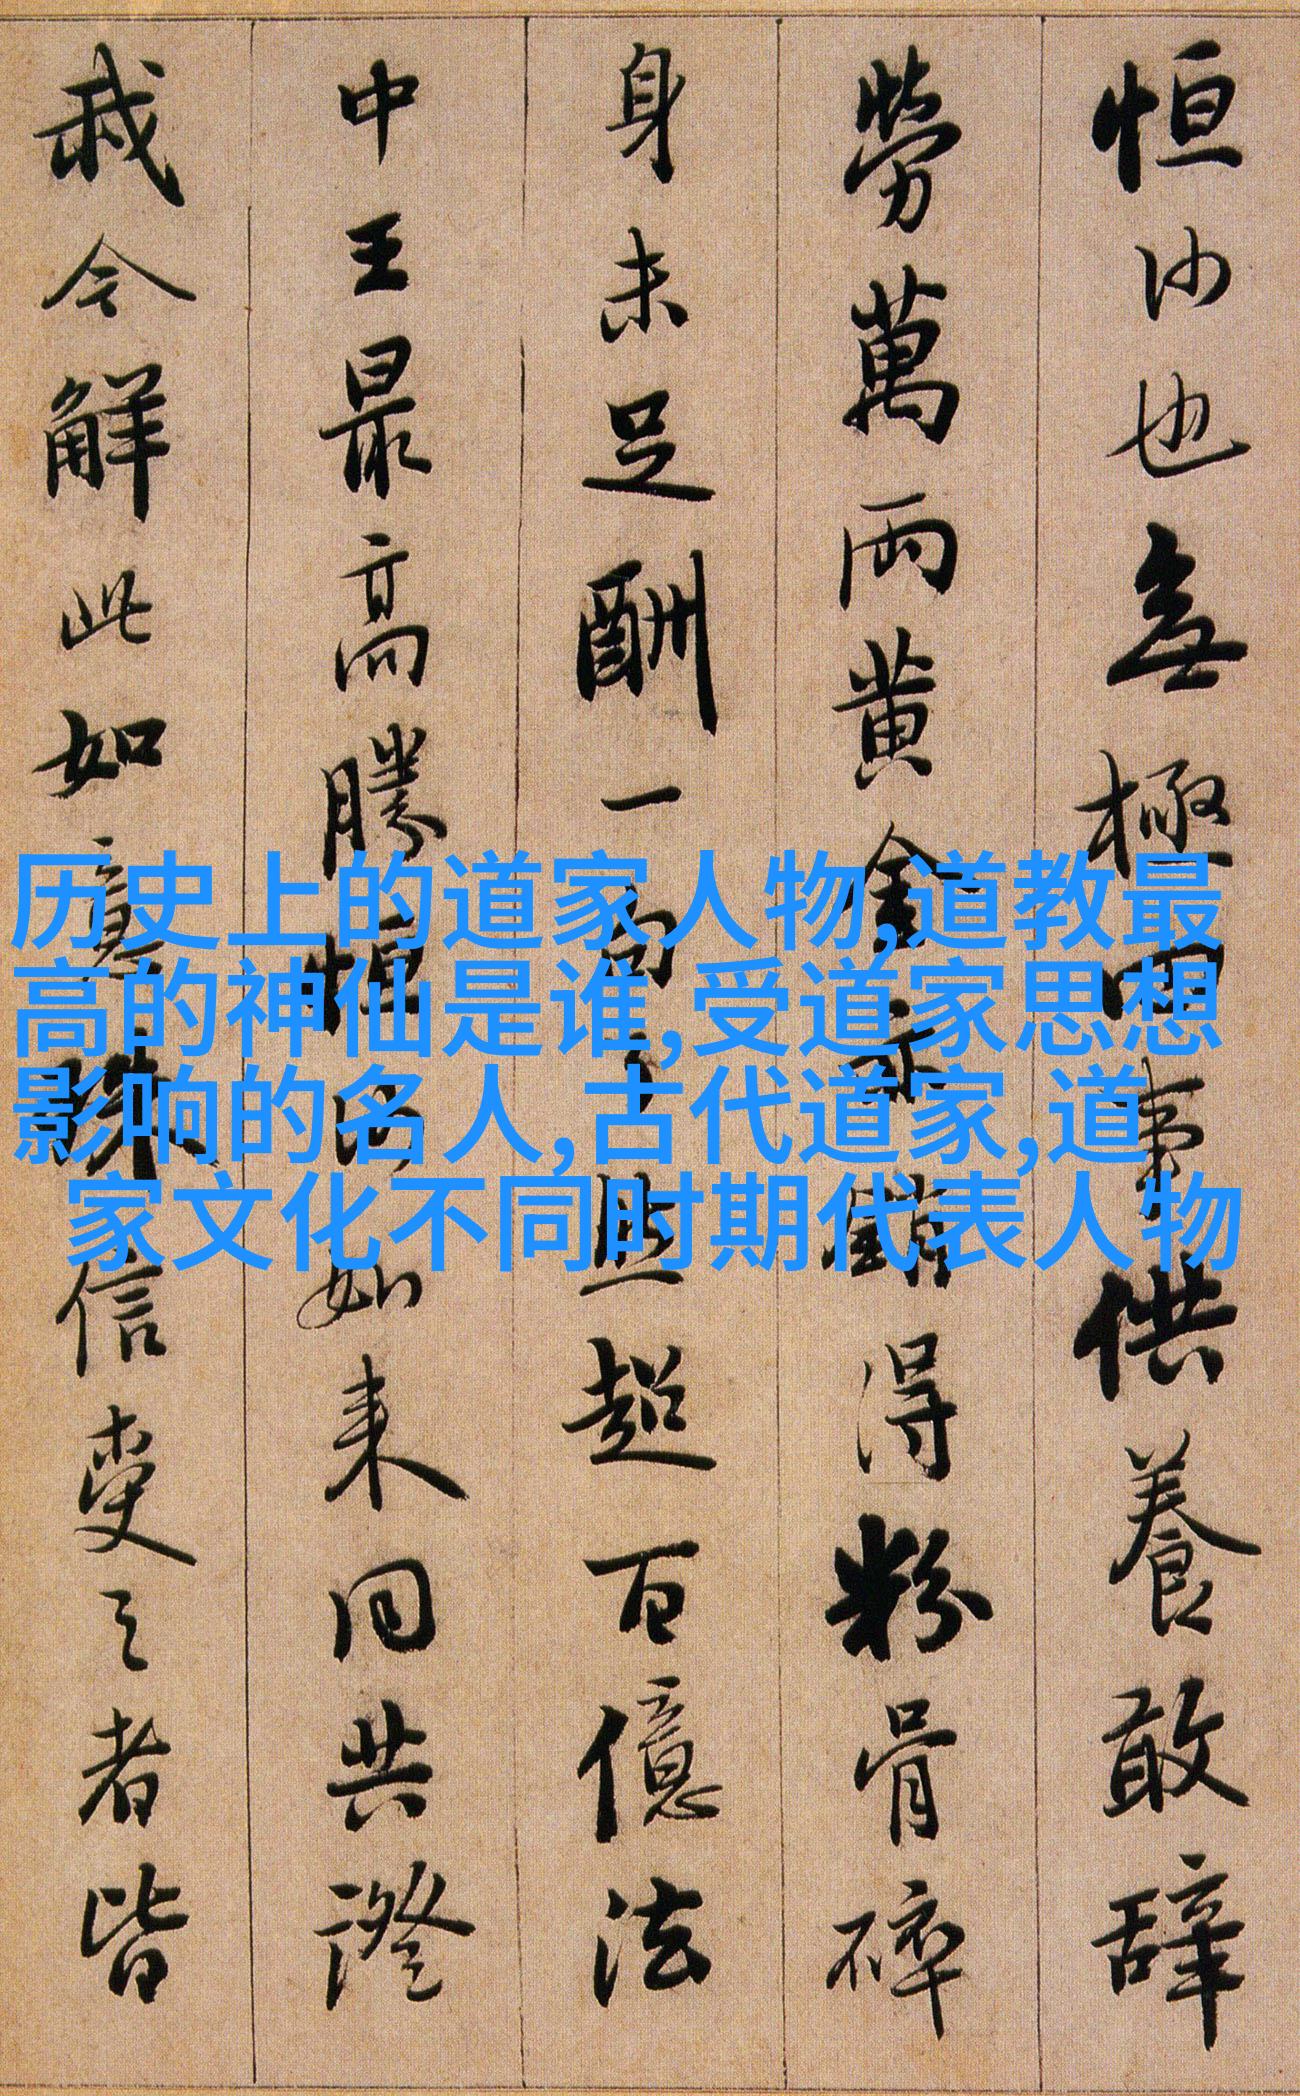 恒沙也無極四事供養敢辭
勞萬兩黄金亦銷得粉骨碎
身未足酬一句了然超百億法
中王最高勝恒沙如来同共證
我今解此如意珠信受之者皆
历史上的道家人物,道教最
高的神仙是谁,受道家思想
影响的名人,古代道家,道
家文化不同时期代表人物